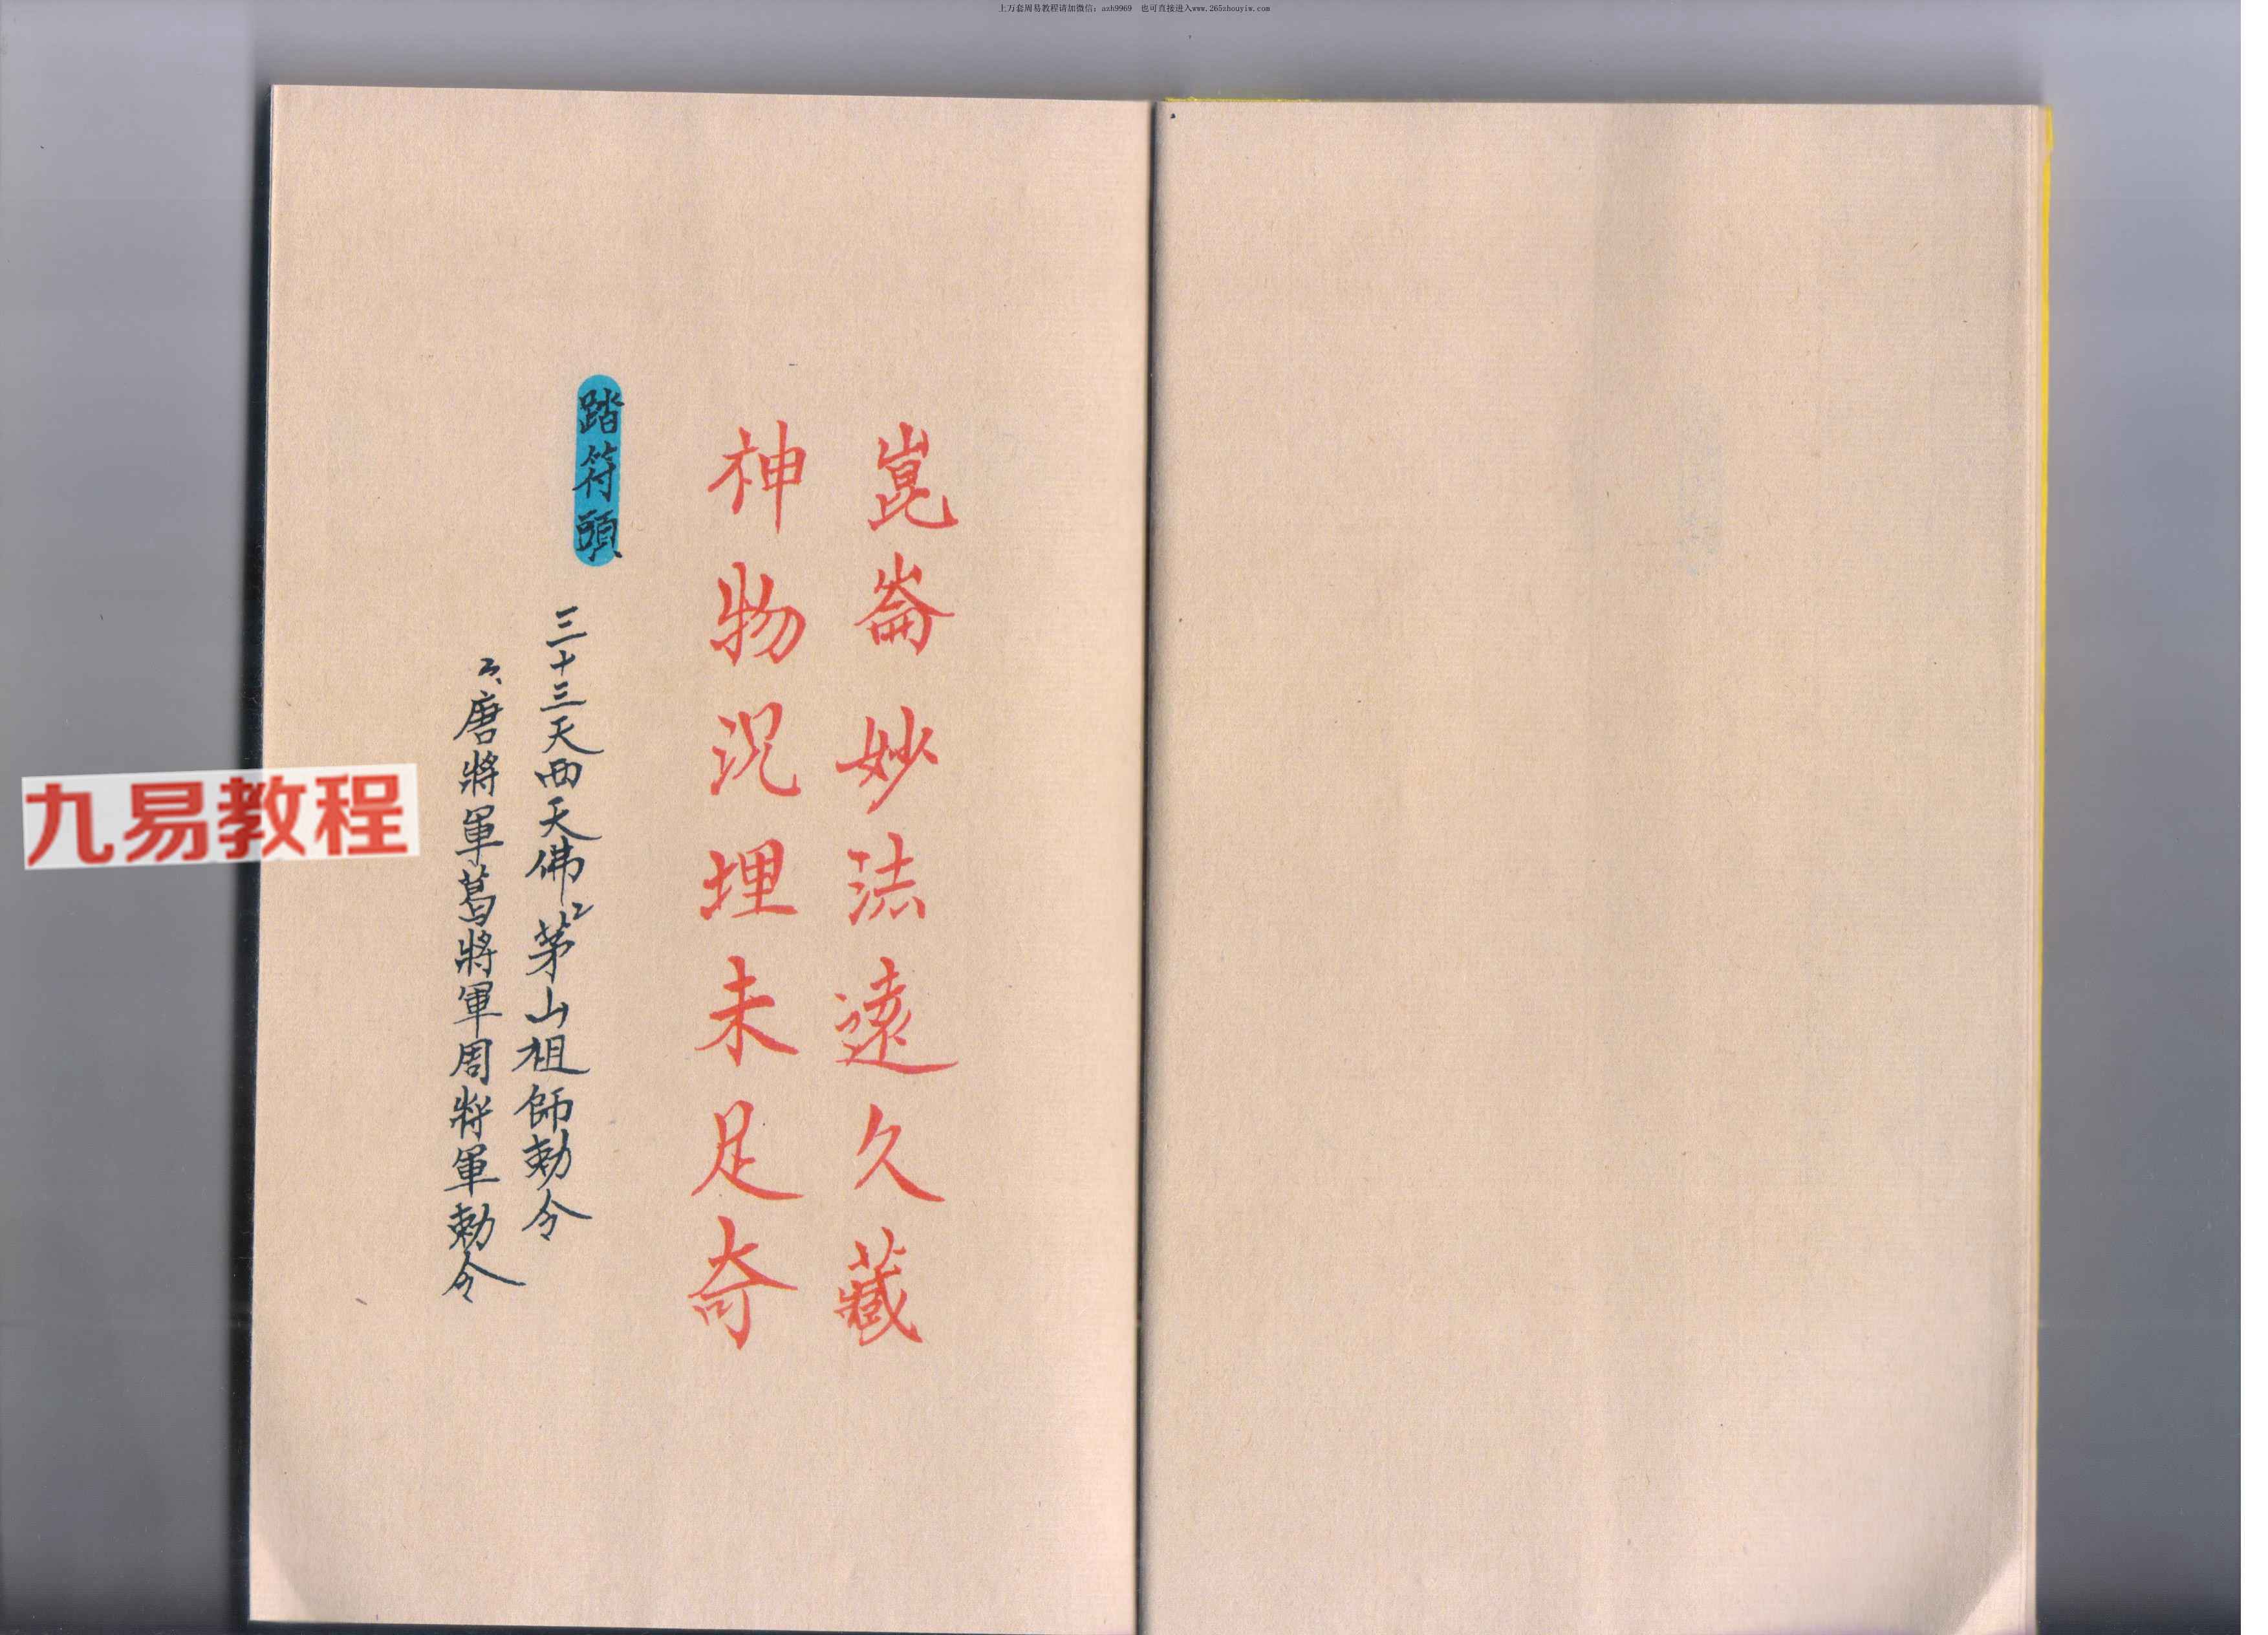 上万套周易教程请加微信：azh9969　也可直接进入www.265zhouyiw.com
崑崙妙法遠久藏
神物沉埋未足奇
踏符頭
三十三天西天佛2茅山祖師勅令
唐將軍葛將軍周將軍勅令
九易教程